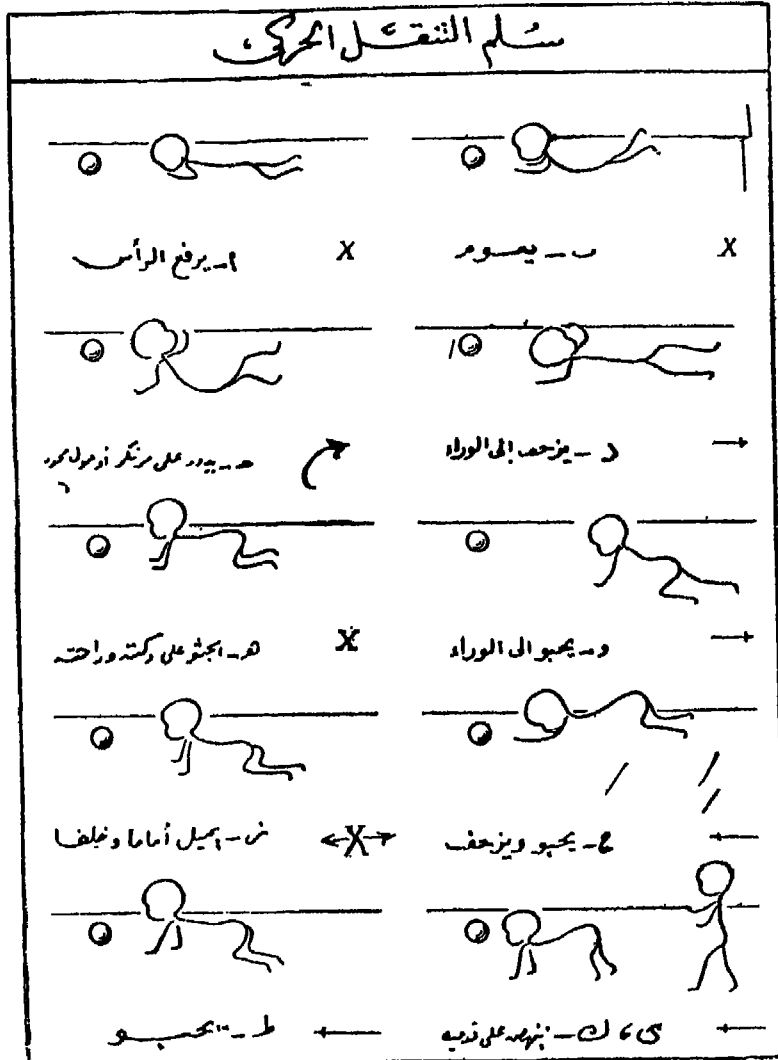 سُلم التنقَّل الحركي
أ - يرفع الرأس X
ب - يعوم X
حـ - يدور على مرتكز أو حول محور
د - يزحف إلى الوراء
هـ - الجثو على ركبته وراحته X
و - يحبو الى الوراء
ز - يميل أماما وخلفا X
ح - يحبو ويزحف
ط - يحبو
ى ، ك - ينهض على قدميه